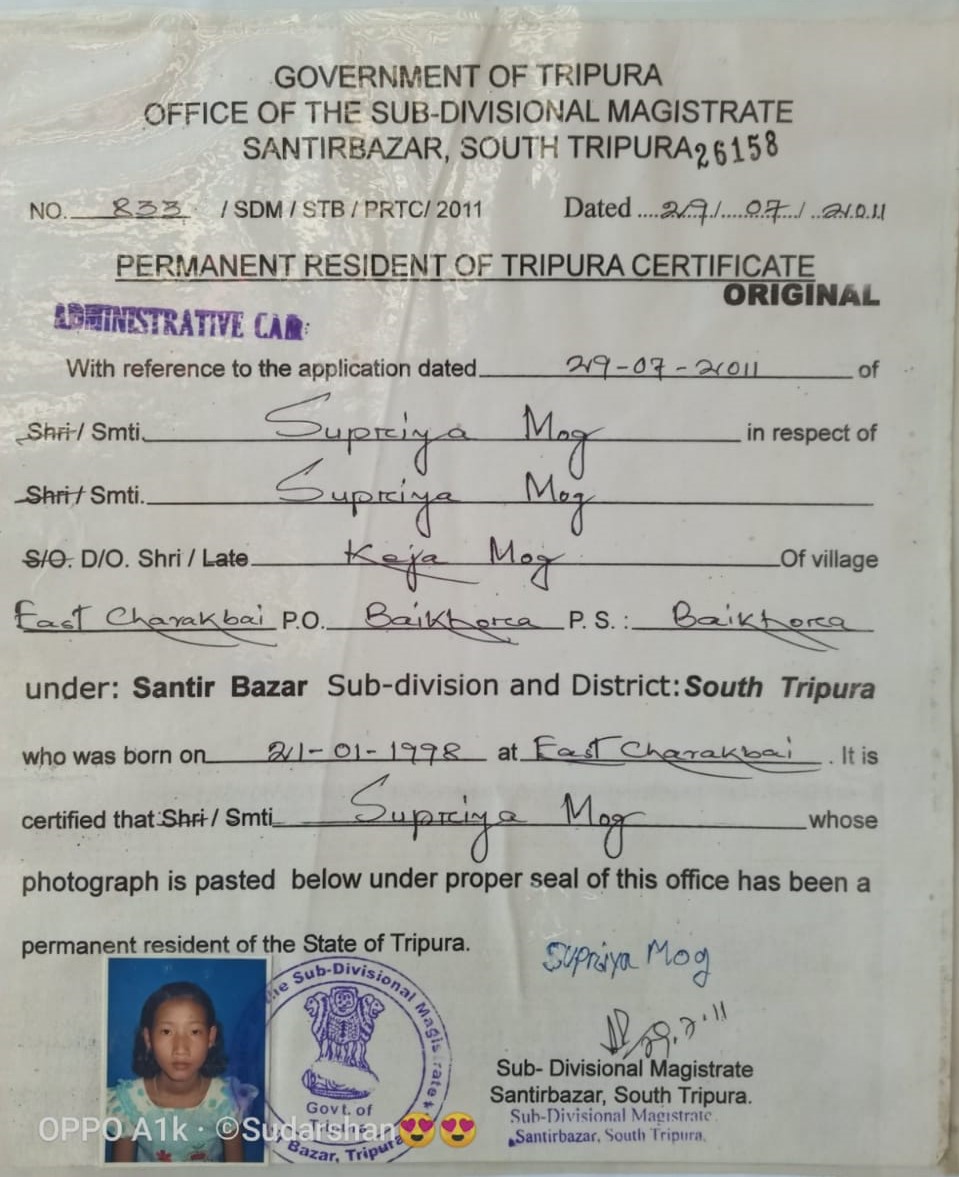 GOVERNMENT OF TRIPURA
OFFICE OF THE SUB-DIVISIONAL MAGISTRATE
SANTIRBAZAR, SOUTH TRIPURA 26158
NO. 833 / SDM / STB / PRTC/ 2011 Dated ....29/.....07.../ ..2011
PERMANENT RESIDENT OF TRIPURA CERTIFICATE
ORIGINAL
ADMINISTRATIVE
With reference to the application dated 29-07-2011 of
Shri / Smti. Supriya Mog in respect of
Shri / Smti. Supriya Mog
S/O. D/O. Shri / Late Keja Mog Of village
East Charakbai P.O. Baikhora P. S. : Baikhora
under: Santir Bazar Sub-division and District: South Tripura
who was born on 21-01-1998 at East Charakbai . It is
certified that Shri / Smti Supriya Mog whose
photograph is pasted below under proper seal of this office has been a
permanent resident of the State of Tripura.
Supriya Mog
Sub- Divisional Magistrate
Santirbazar, South Tripura.
Sub-Divisional Magistrate
Santirbazar, South Tripura.
the Sub-Divisional Magistrate
Govt. of
Bazar, Tripura
OPPO A1k · ©Sudarshan😍😍